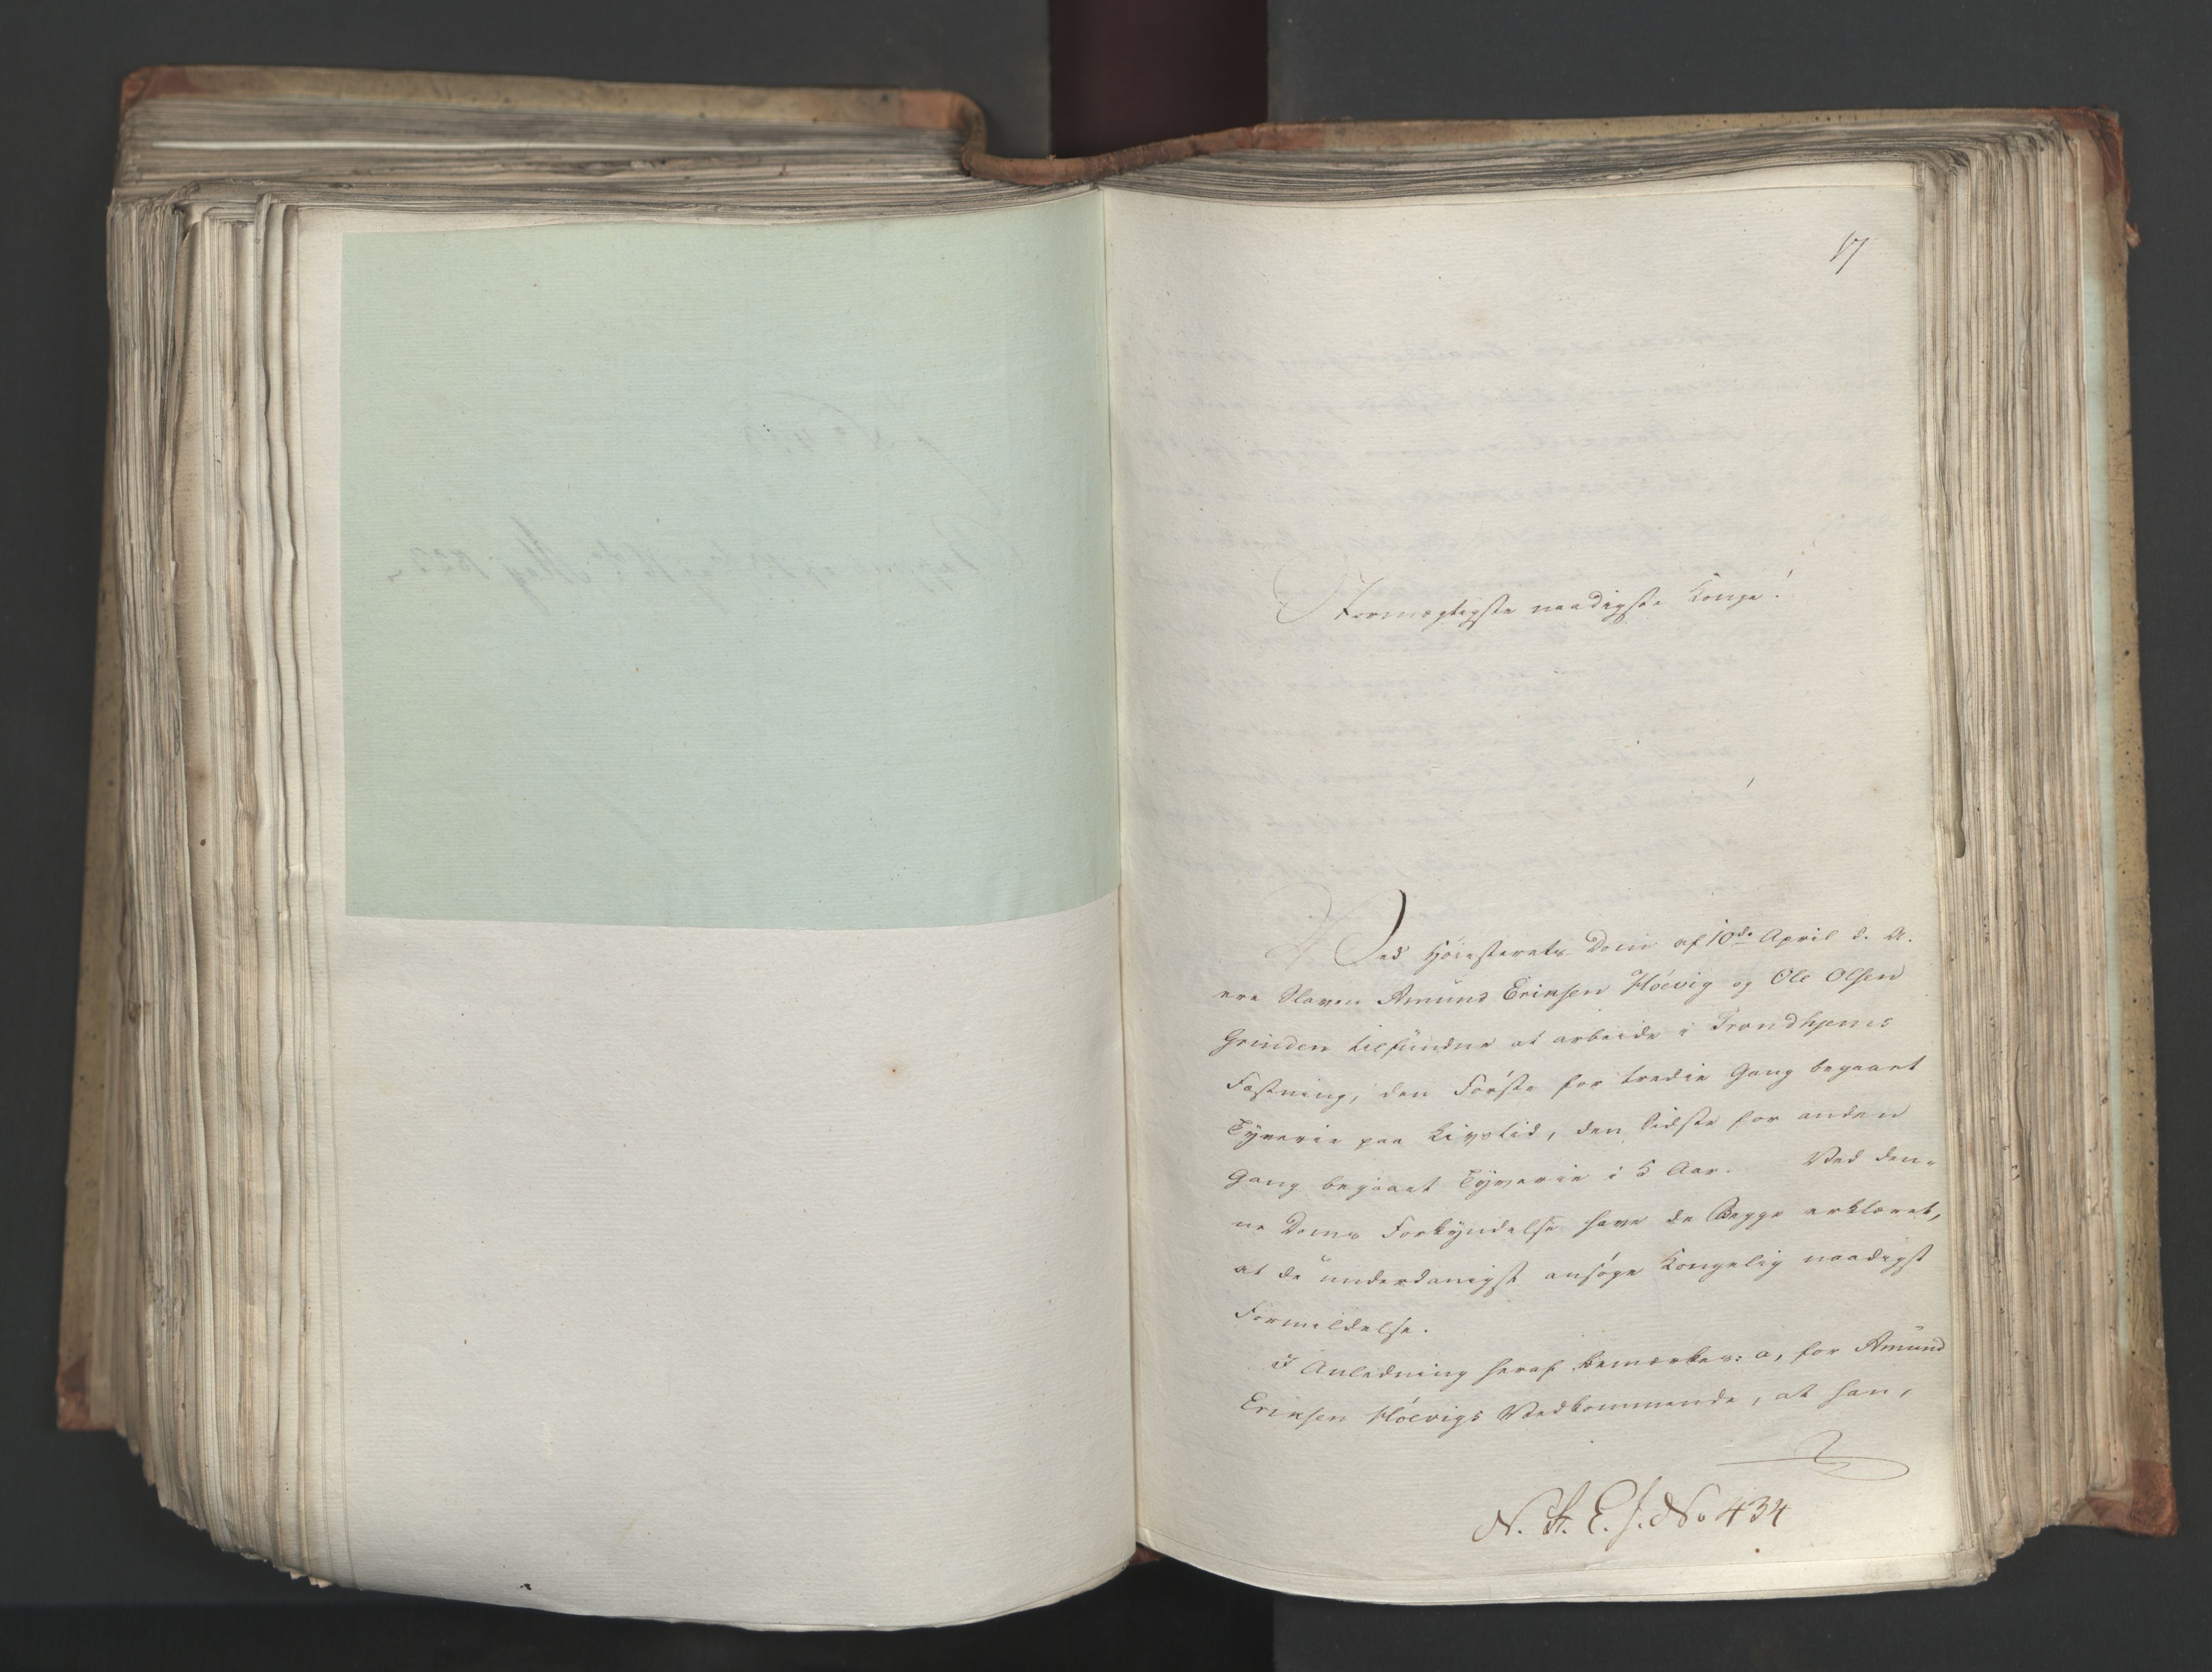 17
Stormægtigste naadigste Konge!
Ved Höiesterets Dom af 10de April d. A.
ere Slaven Amund Eriksen Höevig og Ole Olsen
Grinden tilfundne at arbeide i Trondhjems
Fæstning, den Förste for tredie Gang begaaet
Tyverie paa Livstid, den Sidste for anden
Gang begaaet Tyverie i 5 Aar. Ved den-
ne Doms Forkyndelse have de Begge erklæret,
at de underdanigst ansöge Kongelig naadigst
Formildelse.
I Anledning heraf bemærkes: a, for Amund
Eriksen Höevigs Vedkommende, at han,
N. St. E. J. No 434